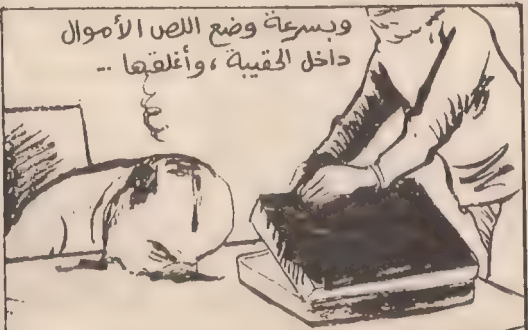 وبسرعة وضع اللص الأموال
داخل الحقيبة ، وأغلقها ..